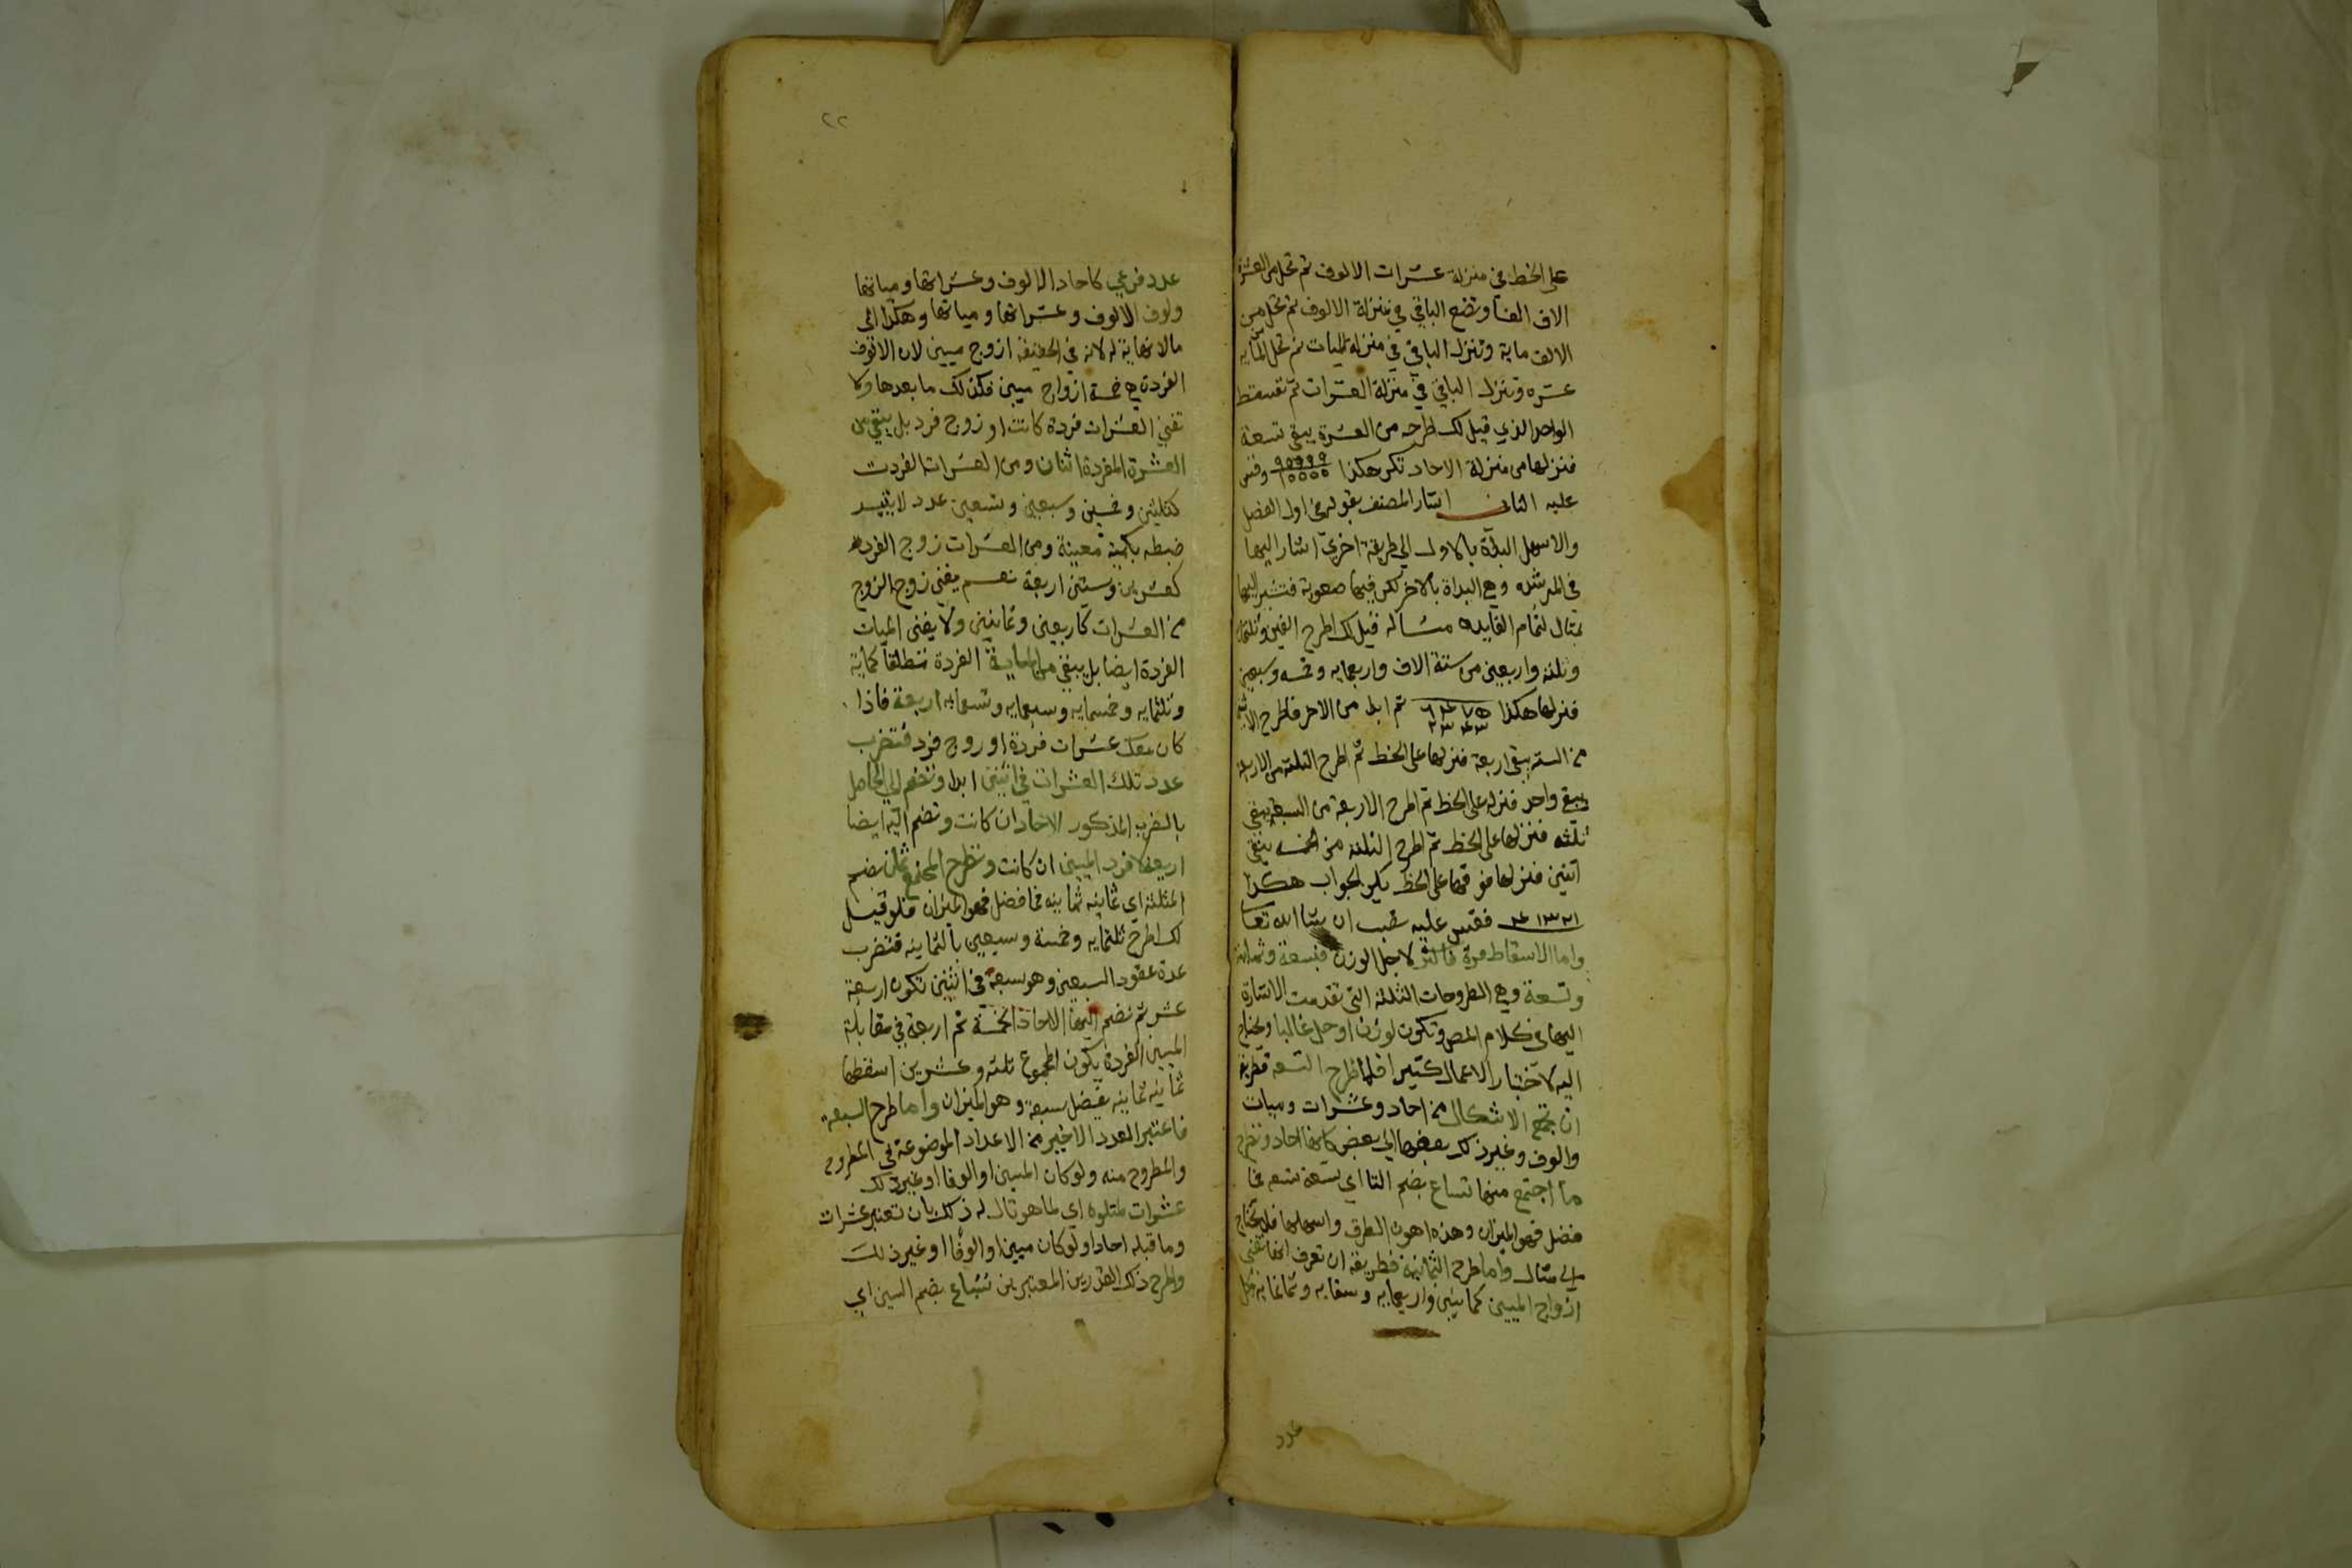 على الخط في منزلة عشرات الالوف ثم تحل من العشرة
الاف الفا وتضع الباقي في منزلة الالوف ثم تحل من
الالف ماية وتنزل الباقي في منزلة الميات ثم تحل من الماية
عشره وتنزل الباقي في منزلة العشرات ثم تسقط
الواحد الذي قيل لك اطرحه من العشرة يبقى تسعة
فنزلها من منزلة الاحاد تكن هكذا وقس
عليه الثاني اشار المصنف بقوله في اول الفصل
والاسهل البداة بالاول الي طريقة اخري اشار اليها
في المرشده وهي البداة بالاخر لكن فيها صعوبة فنشير اليها
بمثال لتمام الفايده مسالة قيل لك اطرح الفين وثلثماية
وثلثه واربعين من ستة الاف واربعمايه وخمسه وسبعين
فنزلها هكذا ٦٤٧٥ ٢٣٤٣ ثم ابدا من الاخر فاطرح الاثنين
من الستة يبقى اربعة فنزلها على الخط ثم اطرح الثلثة من الاربعة
يبقى واحد فنزله على الخط ثم اطرح الاربعة من السبعة يبقى
ثلثه فنزلها على الخط ثم اطرح الثلثة من الخمسه يبقى
اثنين فنزلها فوقها على الخط يكن الجواب هكذا
٤١٣٢ فقس عليه تصب ان شا الله تعا
واما الاسقاط مرة فاكثر لاجل الوزن فبسعة وثمانية
وتسعة وهي الطروحات الثلثه التي تقدمت الاشارة
اليها في كلام المص وتكون لوزن او حل غالبا ويحتاج
اليه لاختبار الاعمال كثيرا فاما طرح التسعة فطريقه
ان تجمع الاشكال من احاد وعشرات وميات
والوف وغير ذلك بعضها الي بعض كانها احاد وتطرح
ما اجتمع منها تساع بضم التا اي تسعة تسعة فما
فضل فهو الميزان وهذه اهون الطرق واسهلها فلا يحتاج
الي مثال واما طرح الثمانية فطريقه ان تعرف انها تفني
ازواج الميين كماتين واربعمايه وستمايه وثمانمايه وكل
عدد
٢٢
عدد فرعي كاحاد الالوف وعشراتها ومياتها
ولوف الالوف وعشراتها ومياتها وهكذا الى
مالا نهاية له لانه في الحقيقة ازوج ميين لان الالوف
الفردة هي خمسة ازواج ميين فكذلك ما بعدها ولا
تفني العشرات فردة كانت او زوج فرد بل يبقى من
العشرة المفردة اثنان ومن العشرات الفردت
كثلاثين وخمسين وسبعين وتسعين عدد لا يتقيد
ضبطه بكمية معينة ومن العشرات زوج الفرد
كعشرين وستين اربعة نعم يفني زوج الزوج
من العشرات كاربعين وثمانين ولا يفنى الميات
الفردة ايضا بل يبقى من الماية الفردة مطلقا كماية
وثلثمايه وخمسمايه وسبعمايه وتسعمايه اربعة فاذا
كان معك عشرات فردة او زوج فرد فتضرب
عدد تلك العشرات في اثنين ابدا وتضم الي الحاصل
بالضرب المذكور الاحاد ان كانت وتضم اليه ايضا
اربعة لافرد الميين ان كانت وتطرح المجتمع ثمان بضم
المثلثة اي ثمانيه ثمانيه فما فضل فهو الميزان فلو قيل
لك اطرح ثلثمايه وخمسة وسبعين بالثمانيه فتضرب
عدة عقود السبعين وهو سبعة في اثنين تكون اربعة
عشر ثم تضم اليها الاحاد الخمسة ثم اربعة في مقابلة
الميين الفردة يكون المجموع ثلثه وعشرين اسقطها
ثمانيه ثمانيه يفضل سبعة وهو الميزان واما طرح السبعة
فاعتبر العدد الاخير من الاعداد الموضوعة في المطروح
والمطروح منه ولو كان الميين او الوفا او غير ذلك
عشرات لمتلوه اي لما هو تال له ذلك بان تعتبر عشرات
وما قبله احادا ولو كان ميين او الوفا او غير ذلك
واطرح ذلك القدرين المعتبرين سباع بضم السين اي